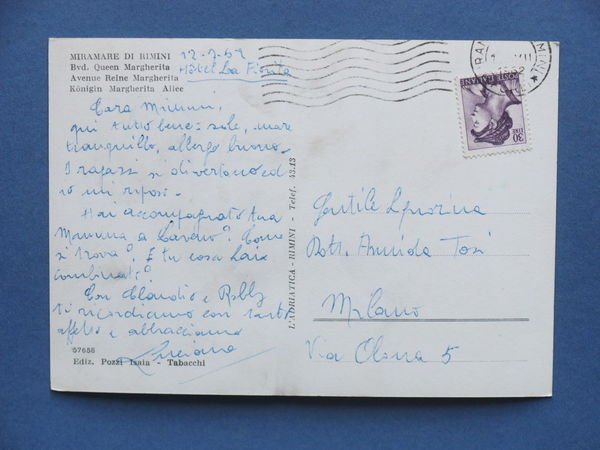 MIRAMARE DI RIMINI
Bvd. Queen Margherita
Avenue Reine Margherita
Königin Margherita Allee
Hôtel La Fiorita
Cara Mimmi,
qui tutto bene: sole, mare
tranquillo, albergo buono.
I ragazzi si divertono ed
io mi riposo.
Hai accompagnato tua
Mamma a Laveno? Come
si trova? E tu cosa hai
combinato?
Con Claudio e Robby
ti ricordiamo con tanto
affetto e abbracciamo
Luciana
57658
Ediz. Pozzi Isaia - Tabacchi
L'ADRIATICA - RIMINI - Telef. 43.13
POSTE ITALIANE
LIRE 30
Gentile Signorina
Dott. Armida Tosi
Milano
Via Olona 5